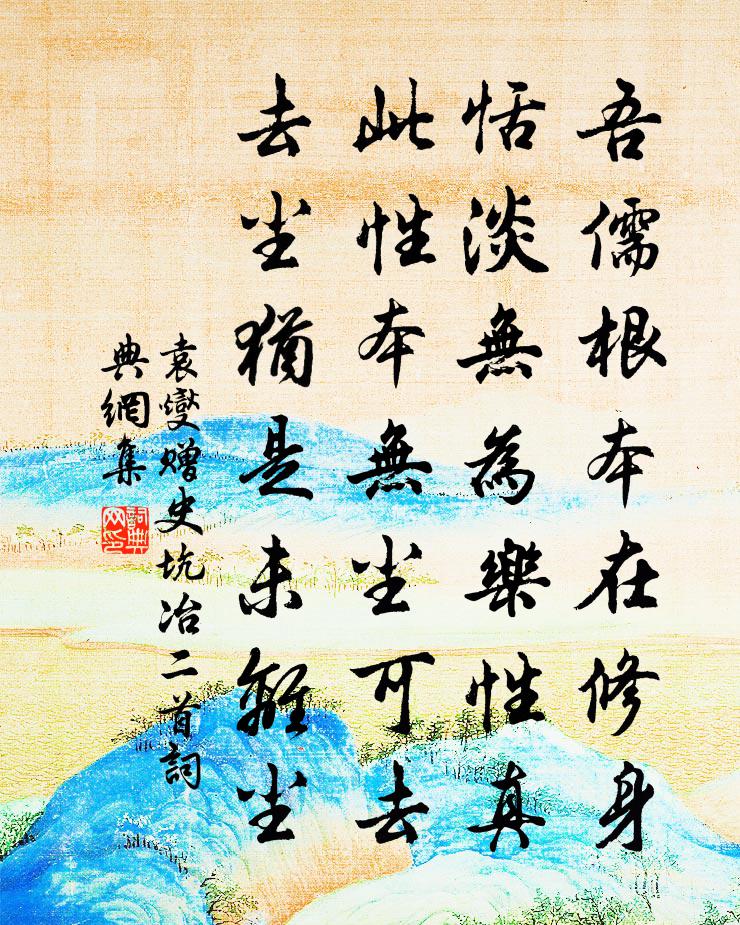 吾儒根本在修身
恬淡無為樂性真
此性本無尘可去
去尘猶是未離尘
袁燮赠史坑冶二首詞
典網集
詞典
网印